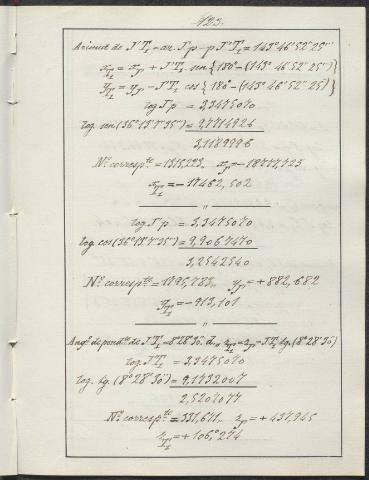 123.
Azimut de Γ'T₁ = az. Γ'p - p Γ'T₁ = 143°46'52"25'''
x = x + Γ'T₁ sen {180° - (143° 46' 52" 25''')}
y = y - Γ'T₁ cos {180° - (143° 46' 52" 25''')}
log Γ'p = 3,3475070
log. sen (36°13'7"35''') = 9,7714926
3,1189996
N.º correspᵗᵉ = 1315,223, x = -18777,725
x = -17462,502
"
log. Γ'p = 3,3475070
log. cos (36°13'7"35''') = 9,9067470
3,2542540
N.º correspᵗᵉ = 1795,783, y = +882,682
y = -913,101
"
Angº de pendᵗᵉ de Γ'T₁ = 8°28'30". z = z - Γ'T₁ tg. (8°28'30")
log. Γ'T₁ = 3,3475070
log. tg. (8°28'30") = 9,1732007
2,5207077
N.º correspᵗᵉ = 331,671, z = +437,945
z = +106,274